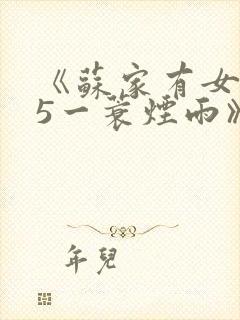 《蘇家有女
5一蓑煙雨》
年兒